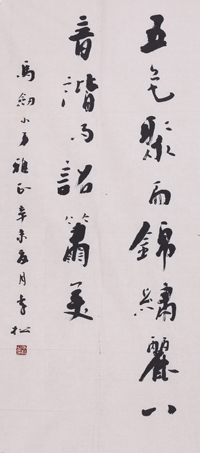 五色聚而錦繡麗八
音諧而韶簫美
馬劍小弟雅正辛未月李松